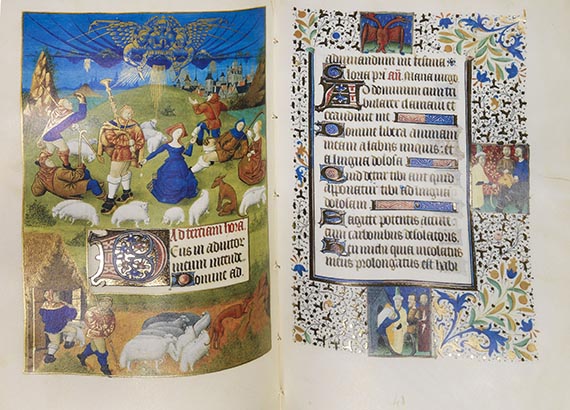 Ad tertiam hora
Deus in adiutor
meum intende
Domine ad
adiuuandum me festina
Gloria pri añ. Maria uirgo
Ad dominum cum tri
bularer clamaui et
exaudiuit me
Domine libera animam
meam a labijs iniquis. et
a lingua dolosa
Quid detur tibi aut quid
apponatur tibi. ad linguam
dolosam
Sagitte potentis acute
cum carbonibus desolatorijs.
Heu michi quia incolatus
meus prolongatus est habi